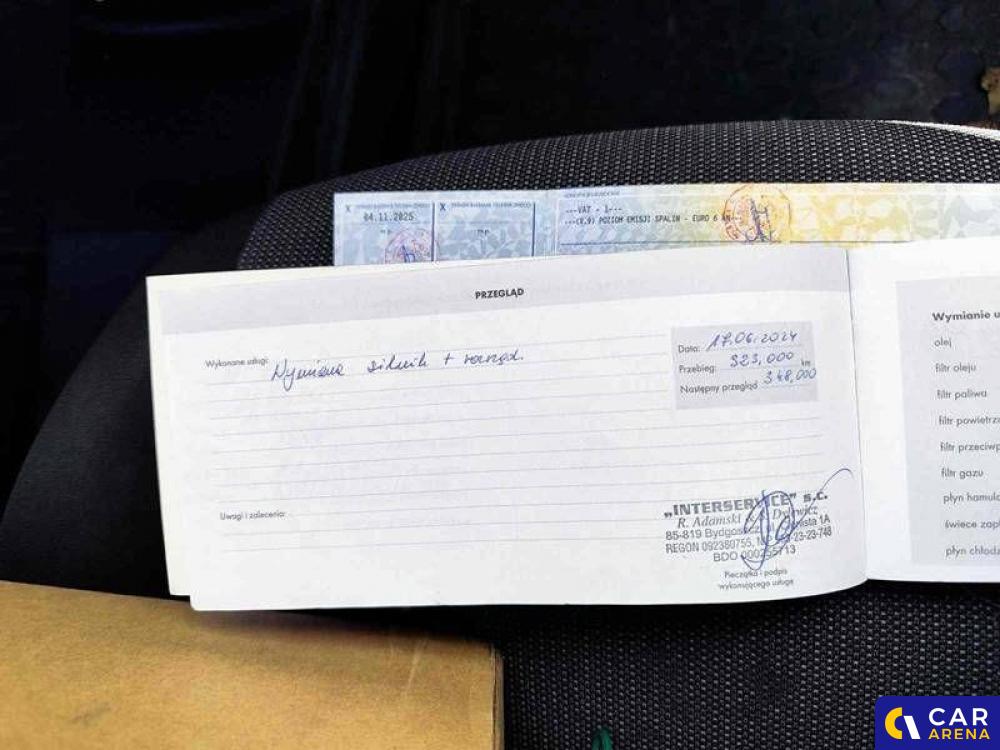 X
04.11.2025
X
---VAT - 1---
---(V.9) POZIOM EMISJI SPALIN - EURO 6
PRZEGLĄD
Wykonane usługi:
Wymiana silnik +
Data: 17.06.2024
Przebieg: 323,000 km
Następny przegląd 348,000
Uwagi i zalecenia:
„INTERSERVICE" s.c.
R. Adamski
85-819 Bydgoszcz, 1A
REGON 092380755, 23-23-748
BDO
Pieczątka i podpis
wykonującego usługę
Wymianie
olej
filtr oleju
filtr paliwa
filtr powietrza
filtr przeciwp
filtr gazu
płyn hamulc
świece zapł
płyn chłodz
CAR
ARENA